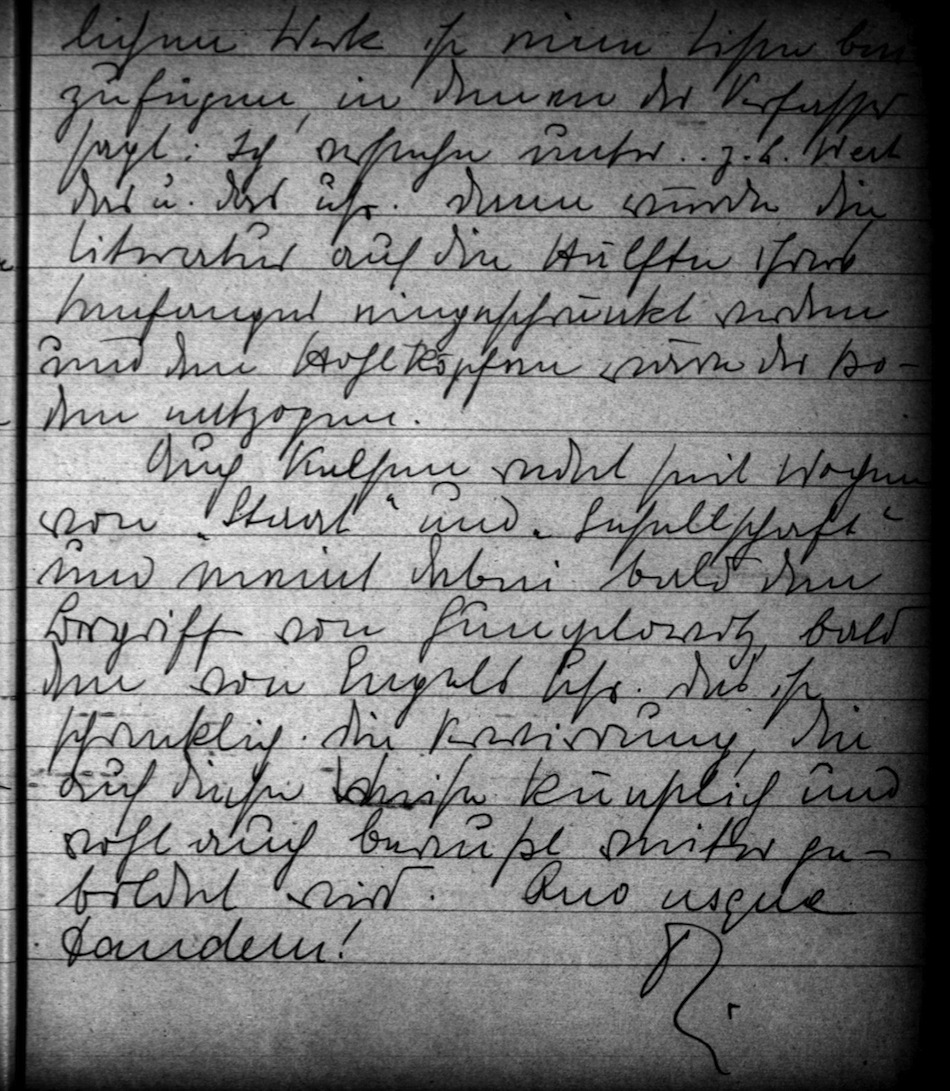 lichen Werk ist einen Listen bei-
zufügen, in denen der Verfasser
sagt: Ich verstehe unter.. z.b. Wert
das u. das usf. dann würde die
Literatur auf die Hälfte ihres
Umfanges eingeschränkt werden
und den Hohlköpfen wäre der Bo-
den entzogen.
Auch Kelsen redet seit Wochen
von „Staat“ und „Gesellschaft“
und meint dabei bald den
Begriff von Gumplowitz, bald
den von Engels usf. das ist
schrecklich. die Verwirrung, die
auf diese Weise künstlich und
wohl auch bewußt weiter ge-
bildet wird. Quo usque
tandem!